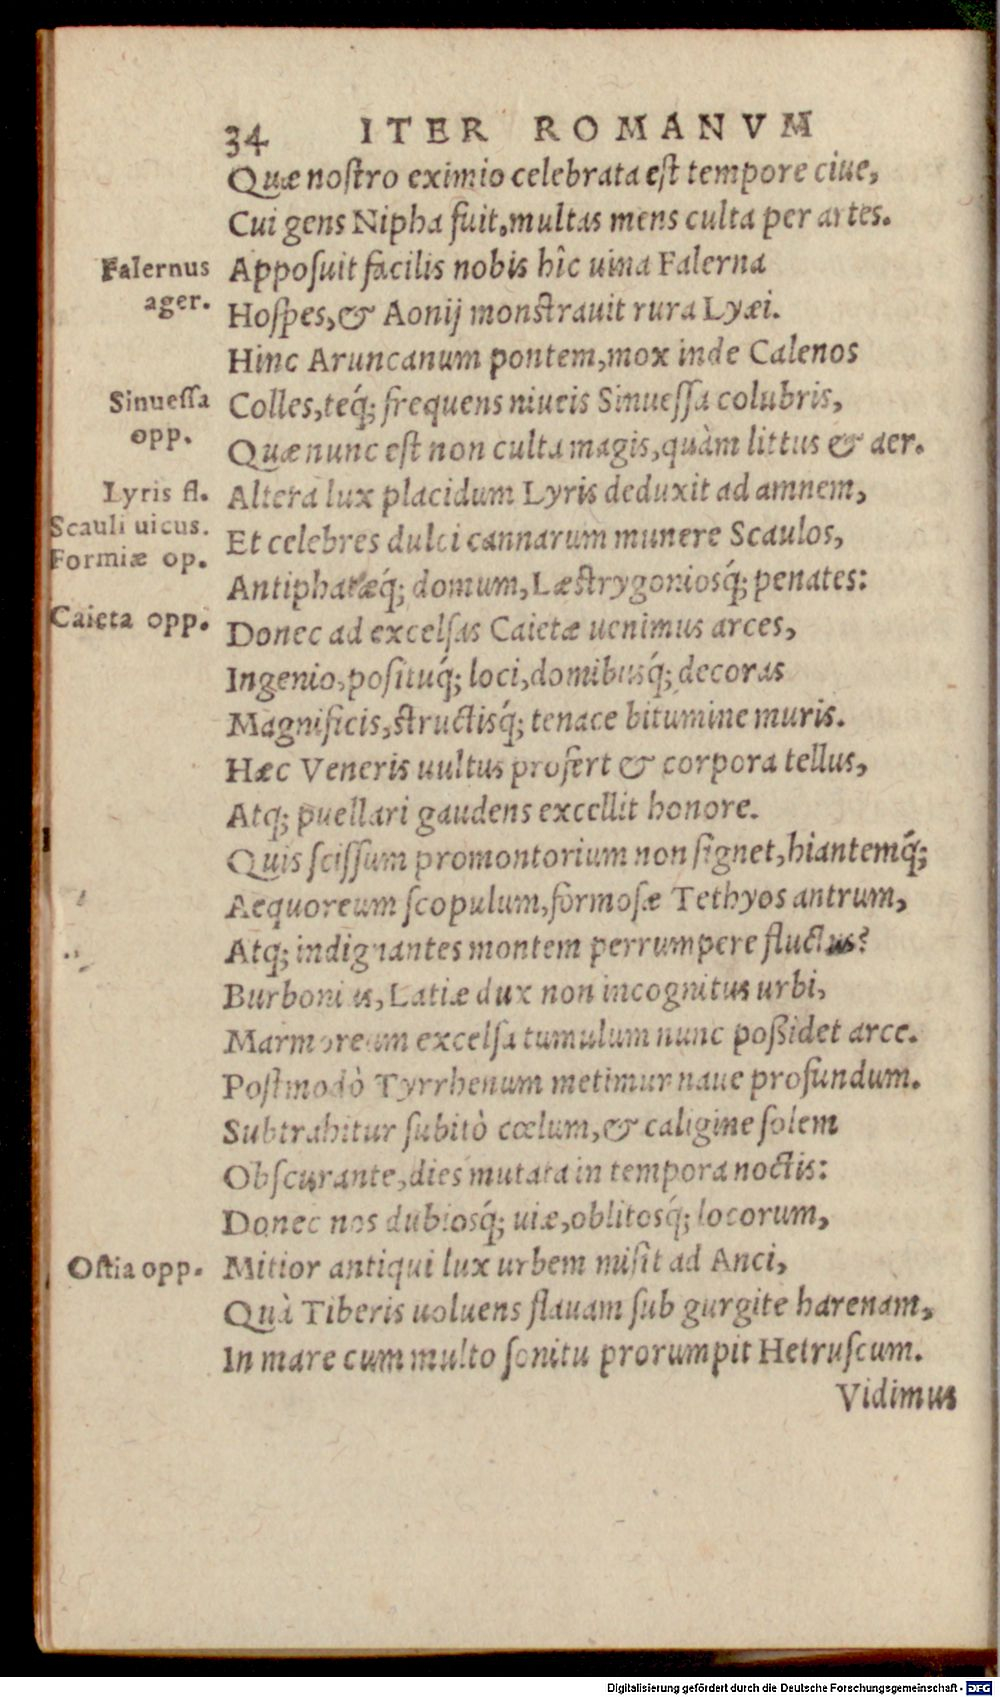 34 ITER ROMANVM
Quæ nostro eximio celebrata est tempore ciue,
Cui gens Nipha fuit, multas mens culta per artes.
Falernus ager.
Apposuit facilis nobis hîc uina Falerna
Hospes, & Aonij monstrauit rura Lyæi.
Hinc Aruncanum pontem, mox inde Calenos
Sinuessa opp.
Colles, teq́; frequens niueis Sinuessa colubris,
Quæ nunc est non culta magis, quàm littus & aer.
Lyris fl.
Altera lux placidum Lyris deduxit ad amnem,
Scauli uicus.
Et celebres dulci cannarum munere Scaulos,
Formiæ op.
Antiphatæq́; domum, Læstrygoniosq́; penates:
Caieta opp.
Donec ad excelsas Caietæ uenimus arces,
Ingenio, posituq́; loci, domibusq́; decoras
Magnificis, structisq́; tenace bitumine muris.
Hæc Veneris uultus profert & corpora tellus,
Atq; puellari gaudens excellit honore.
Quis scissum promontorium non signet, hiantemq́;
Aequoreum scopulum, formosæ Tethyos antrum,
Atq; indignantes montem perrumpere fluctus?
Burbonius, Latiæ dux non incognitus urbi,
Marmoreum excelsa tumulum nunc poßidet arce.
Postmodò Tyrrhenum metimur naue profundum.
Subtrahitur subitò cœlum, & caligine solem
Obscurante, dies mutata in tempora noctis:
Donec nos dubiosq́; uiæ, oblitosq́; locorum,
Ostia opp.
Mitior antiqui lux urbem misit ad Anci,
Quà Tiberis uoluens flauam sub gurgite harenam,
In mare cum multo sonitu prorumpit Hetruscum.
Vidimus
Digitalisierung gefördert durch die Deutsche Forschungsgemeinschaft - DFG